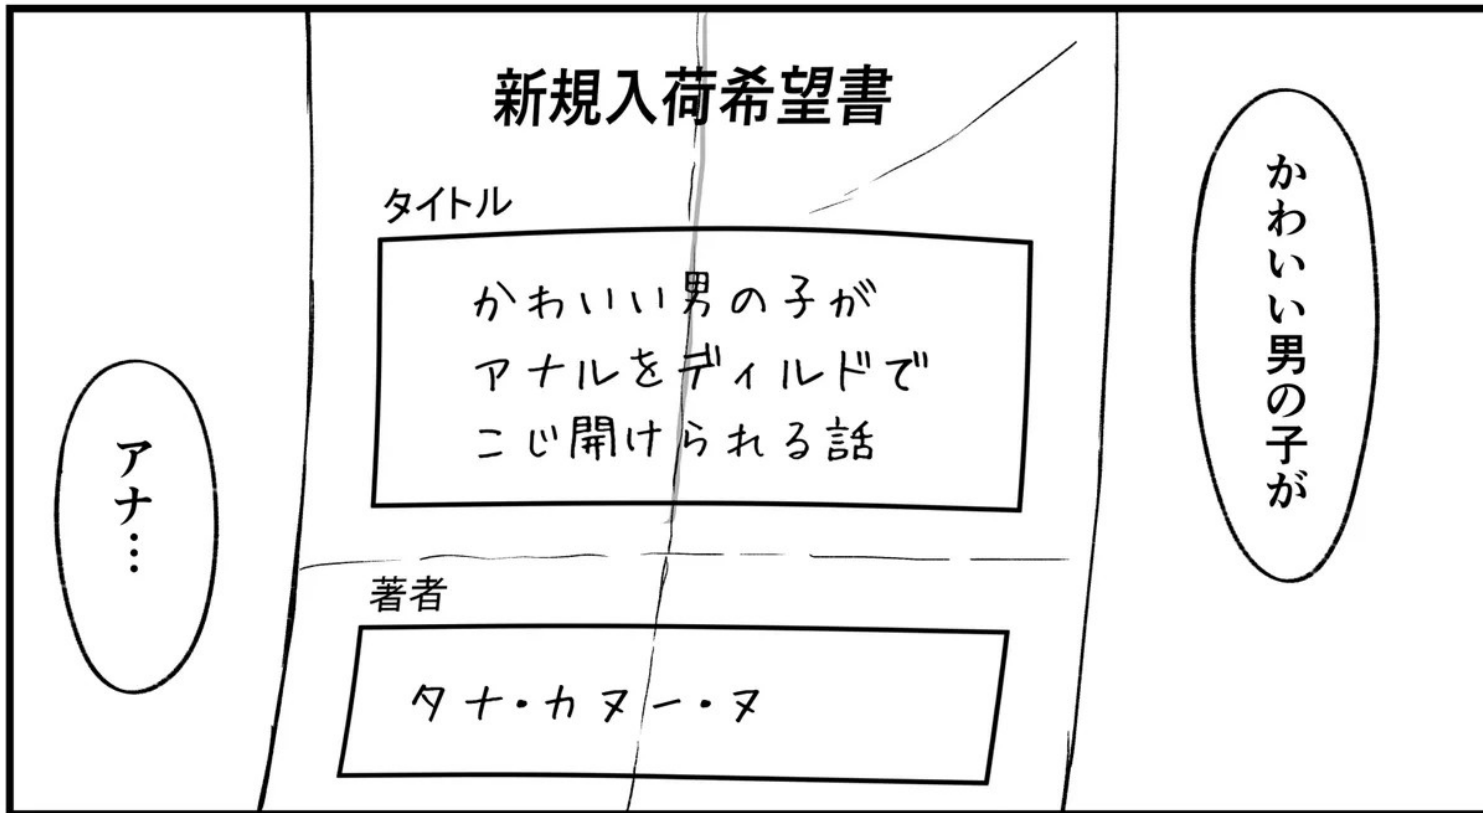 かわいい男の子が
新規入荷希望書
タイトル
かわいい男の子が
アナルをディルドで
こじ開けられる話
著者
タナ・カヌー・ヌ
アナ…